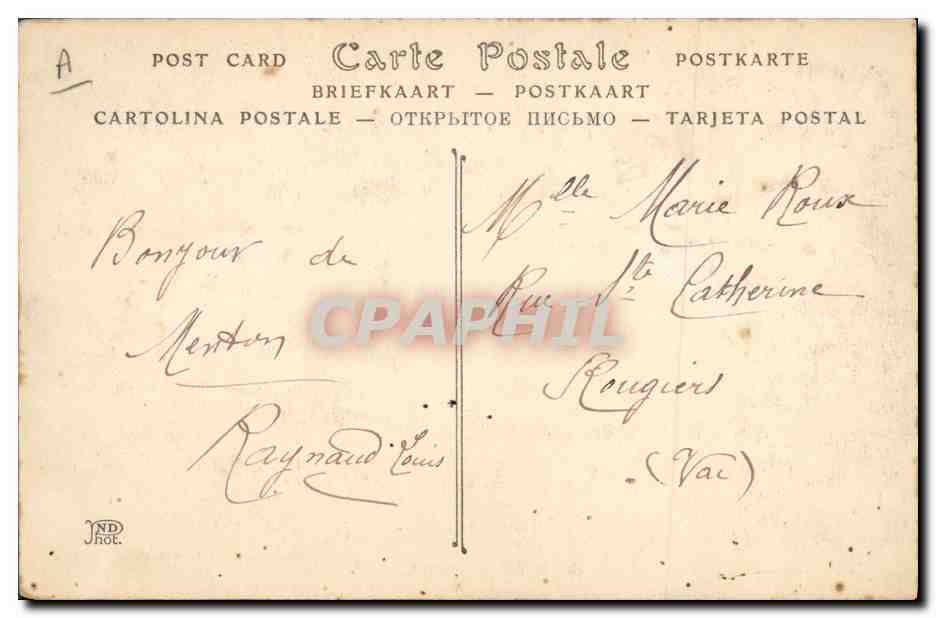 A
POST CARD Carte Postale POSTKARTE
BRIEFKAART — POSTKAART
CARTOLINA POSTALE — ОТКРЫТОЕ ПИСЬМО — TARJETA POSTAL
Bonjour de
Menton
Raynaud Louis
Mlle Marie Roux
Rue Ste Catherine
Rougiers
(Var)
CPAPHIL
ND
Phot.